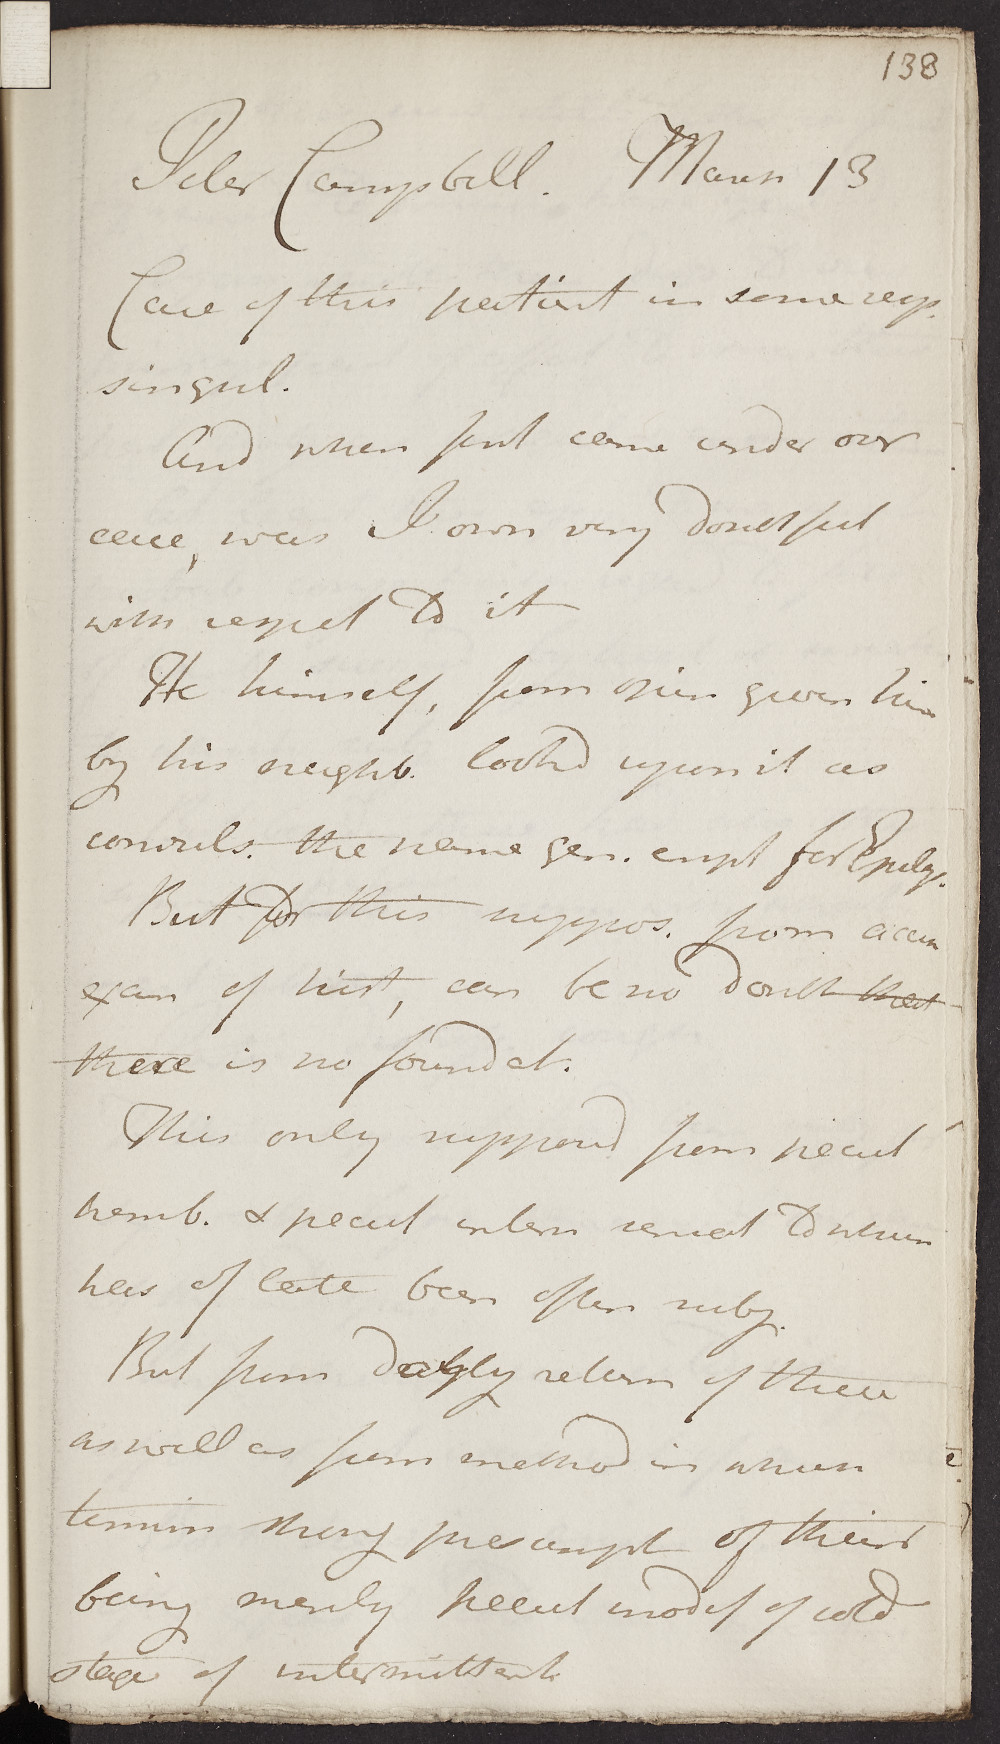 138
Peter Campbell. March 13
Case of this patient in some resp.
singul.
And when first came under our
care, was I own very doubtful
with respect to it
He himself, from opin given him
by his neighb. lookd upon it as
convuls. the name gen. empl for Epilep.
But for this suppos. from accur
exam of hist, can be no doubt that
there is no foundat.
This only supposd from pecul
tremb. & pecul intern sensat to which
has of late been often subj.
But from daily return of these
as well as from method in which
termin strong presumpt of their
being merely pecul modif of cold
stage of intermittent